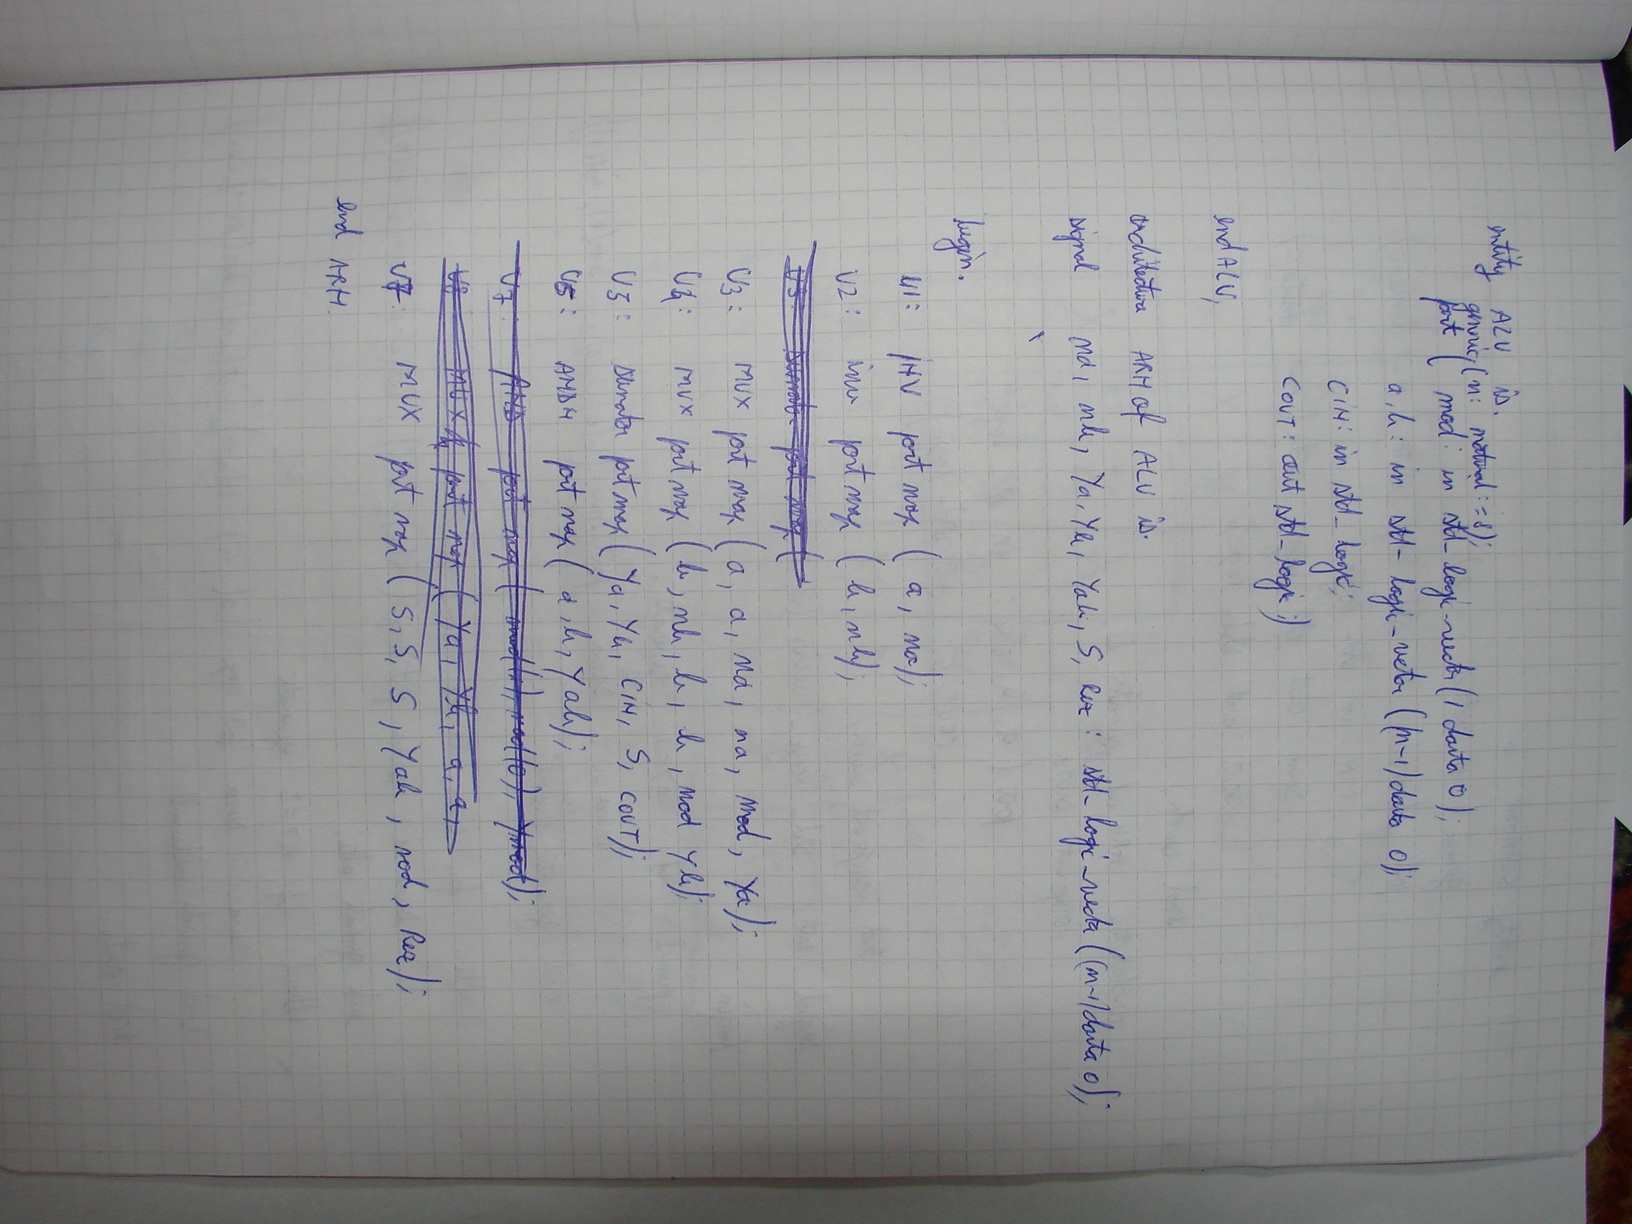 entity ALU is.
generic(n: natural:=8);
port( mod: in std_logic-vector(1 downto 0);
a,b: in std-logic-vector(n-1)downto 0);
CIN: in std_logic;
COUT: out std_logic;)
end ALU;
architecture ARH of ALU is.
signal na, nb, Ya, Yb, Yab, S, Rez: std-logic-vector((n-1)downto 0);
begin.
U1: INV port map (a, na);
U2: inv port map (b, nb);
U3: MUX port map (a, a, na, na, mod, Ya);
U4: MUX port map (b, nb, b, b, mod Yb);
U5: sumator port map (Ya, Yb, CIN, S, COUT);
U6: ANDN port map (a, b, Yab);
U7: port map ( mod(1), mod(0), Ymod);
MUX port map ( Ya, Yb, a, a,
U7: MUX port map (S, S, S, Yab, mod, Rez);
end ARH.